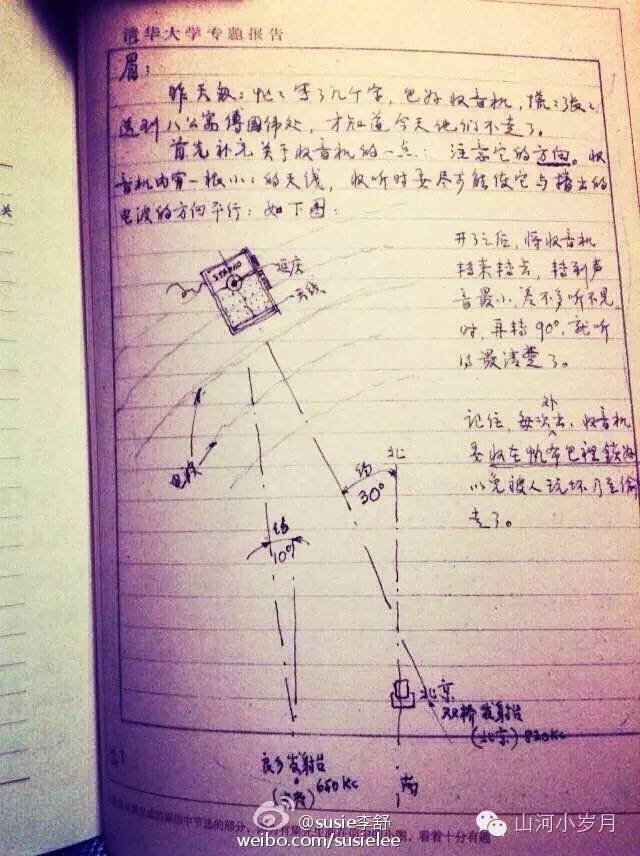 清华大学专题报告
眉：
昨天匆匆忙忙写了几个字，包好收音机，慌慌张张
送到八公寓傅国伟处，才知道今天他们不走了。
首先补充关于收音机的一点：注意它的方向。收
音机内有一根小小的天线，收听时要尽可能使它与指出的
电波的方向平行：如下图：
开了之后，将收音机
转来转去，转到声
音最小，差不多听不见
时，再转90°，就听
得最清楚了。
记住，每次外出，收音机
要收在帆布包裡鎖好
以免被人玩坏乃至偷
走了。
延庆
天线
电波
北
约
30°
约
10°
北京
双桥发射台
(北京) 820KC
良乡发射台
650KC
南
@susie李舒
weibo.com/susielee
山河小岁月